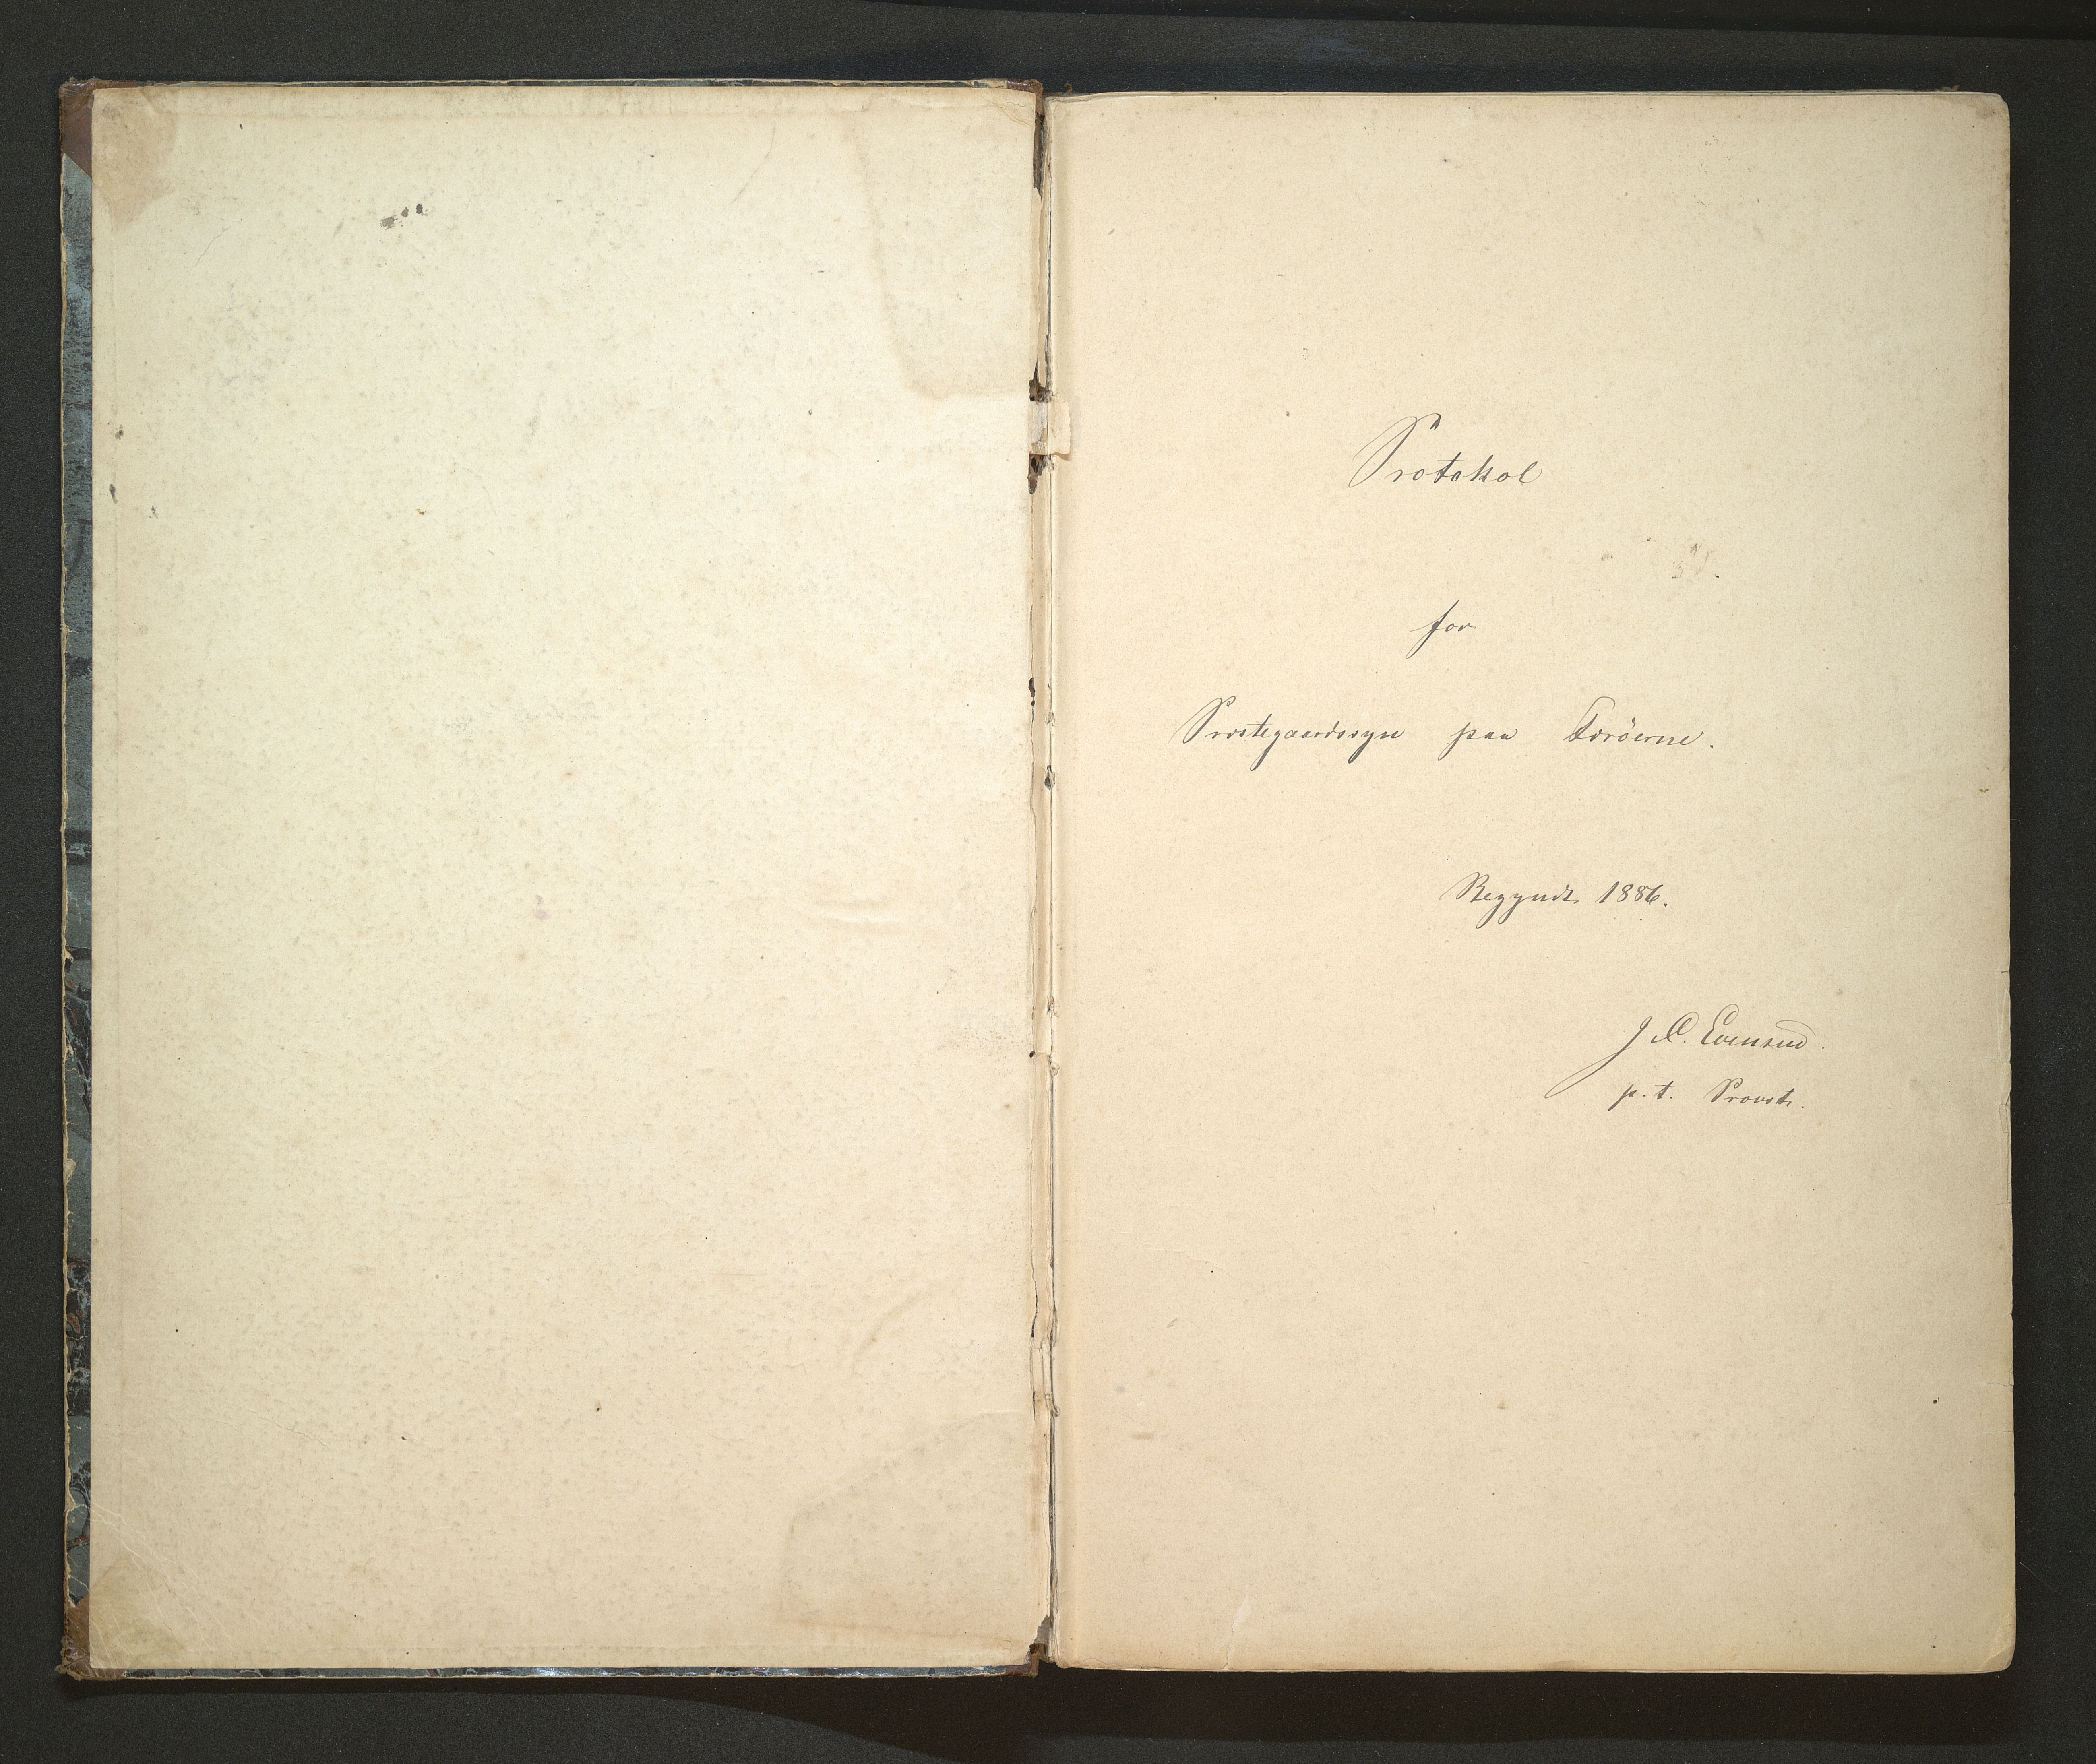 Protokol
for
Præstegaardssyn paa Færöerne.
Begyndt 1886.
J. C. Evensend.
p. t. Provst.